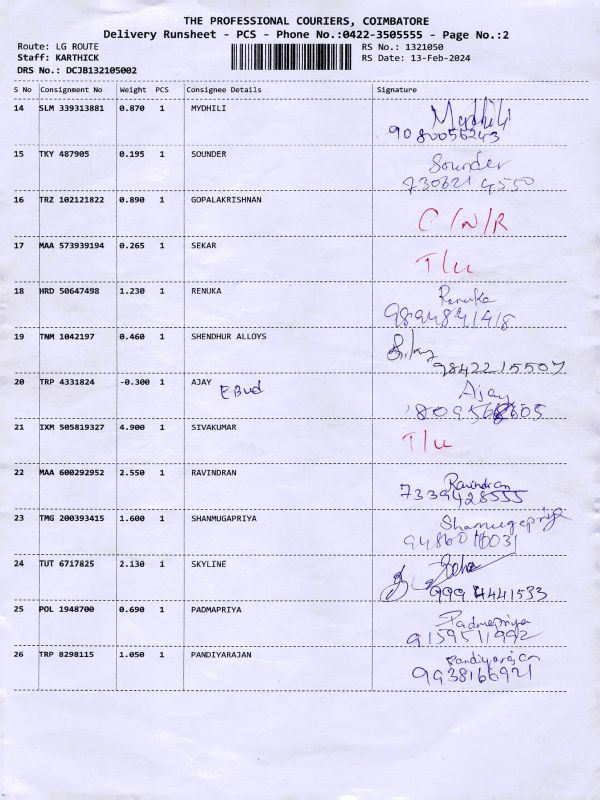 THE PROFESSIONAL COURIERS, COIMBATORE
Delivery Runsheet - PCS - Phone No.:0422-3505555 - Page No.:2
Route: LG ROUTE RS No.: 1321050
Staff: KARTHICK RS Date: 13-Feb-2024
DRS No.: DCJB132105002
S No Consignment No Weight PCS Consignee Details Signature
14 SLM 339313881 0.870 1 MYDHILI Mydhili
9080056243
15 TKY 487905 0.195 1 SOUNDER Sounder
730621 4550
16 TRZ 102121822 0.890 1 GOPALAKRISHNAN C/N/R
17 MAA 573939194 0.265 1 SEKAR T/L
18 HRD 50647498 1.230 1 RENUKA Renuka
9894891418
19 TNM 1042197 0.460 1 SHENDHUR ALLOYS
9842215507
20 TRP 4331824 -0.300 1 AJAY Ajay
21 IXM 505819327 4.900 1 SIVAKUMAR T/L
22 MAA 600292952 2.550 1 RAVINDRAN Ravindran
7339428555
23 TMG 200393415 1.600 1 SHANMUGAPRIYA Shanmugapriya
24 TUT 6717825 2.130 1 SKYLINE
9994441533
25 POL 1948700 0.690 1 PADMAPRIYA Padmapriya
9159511992
26 TRP 8298115 1.050 1 PANDIYARAJAN Pandiyarajan
9938166921